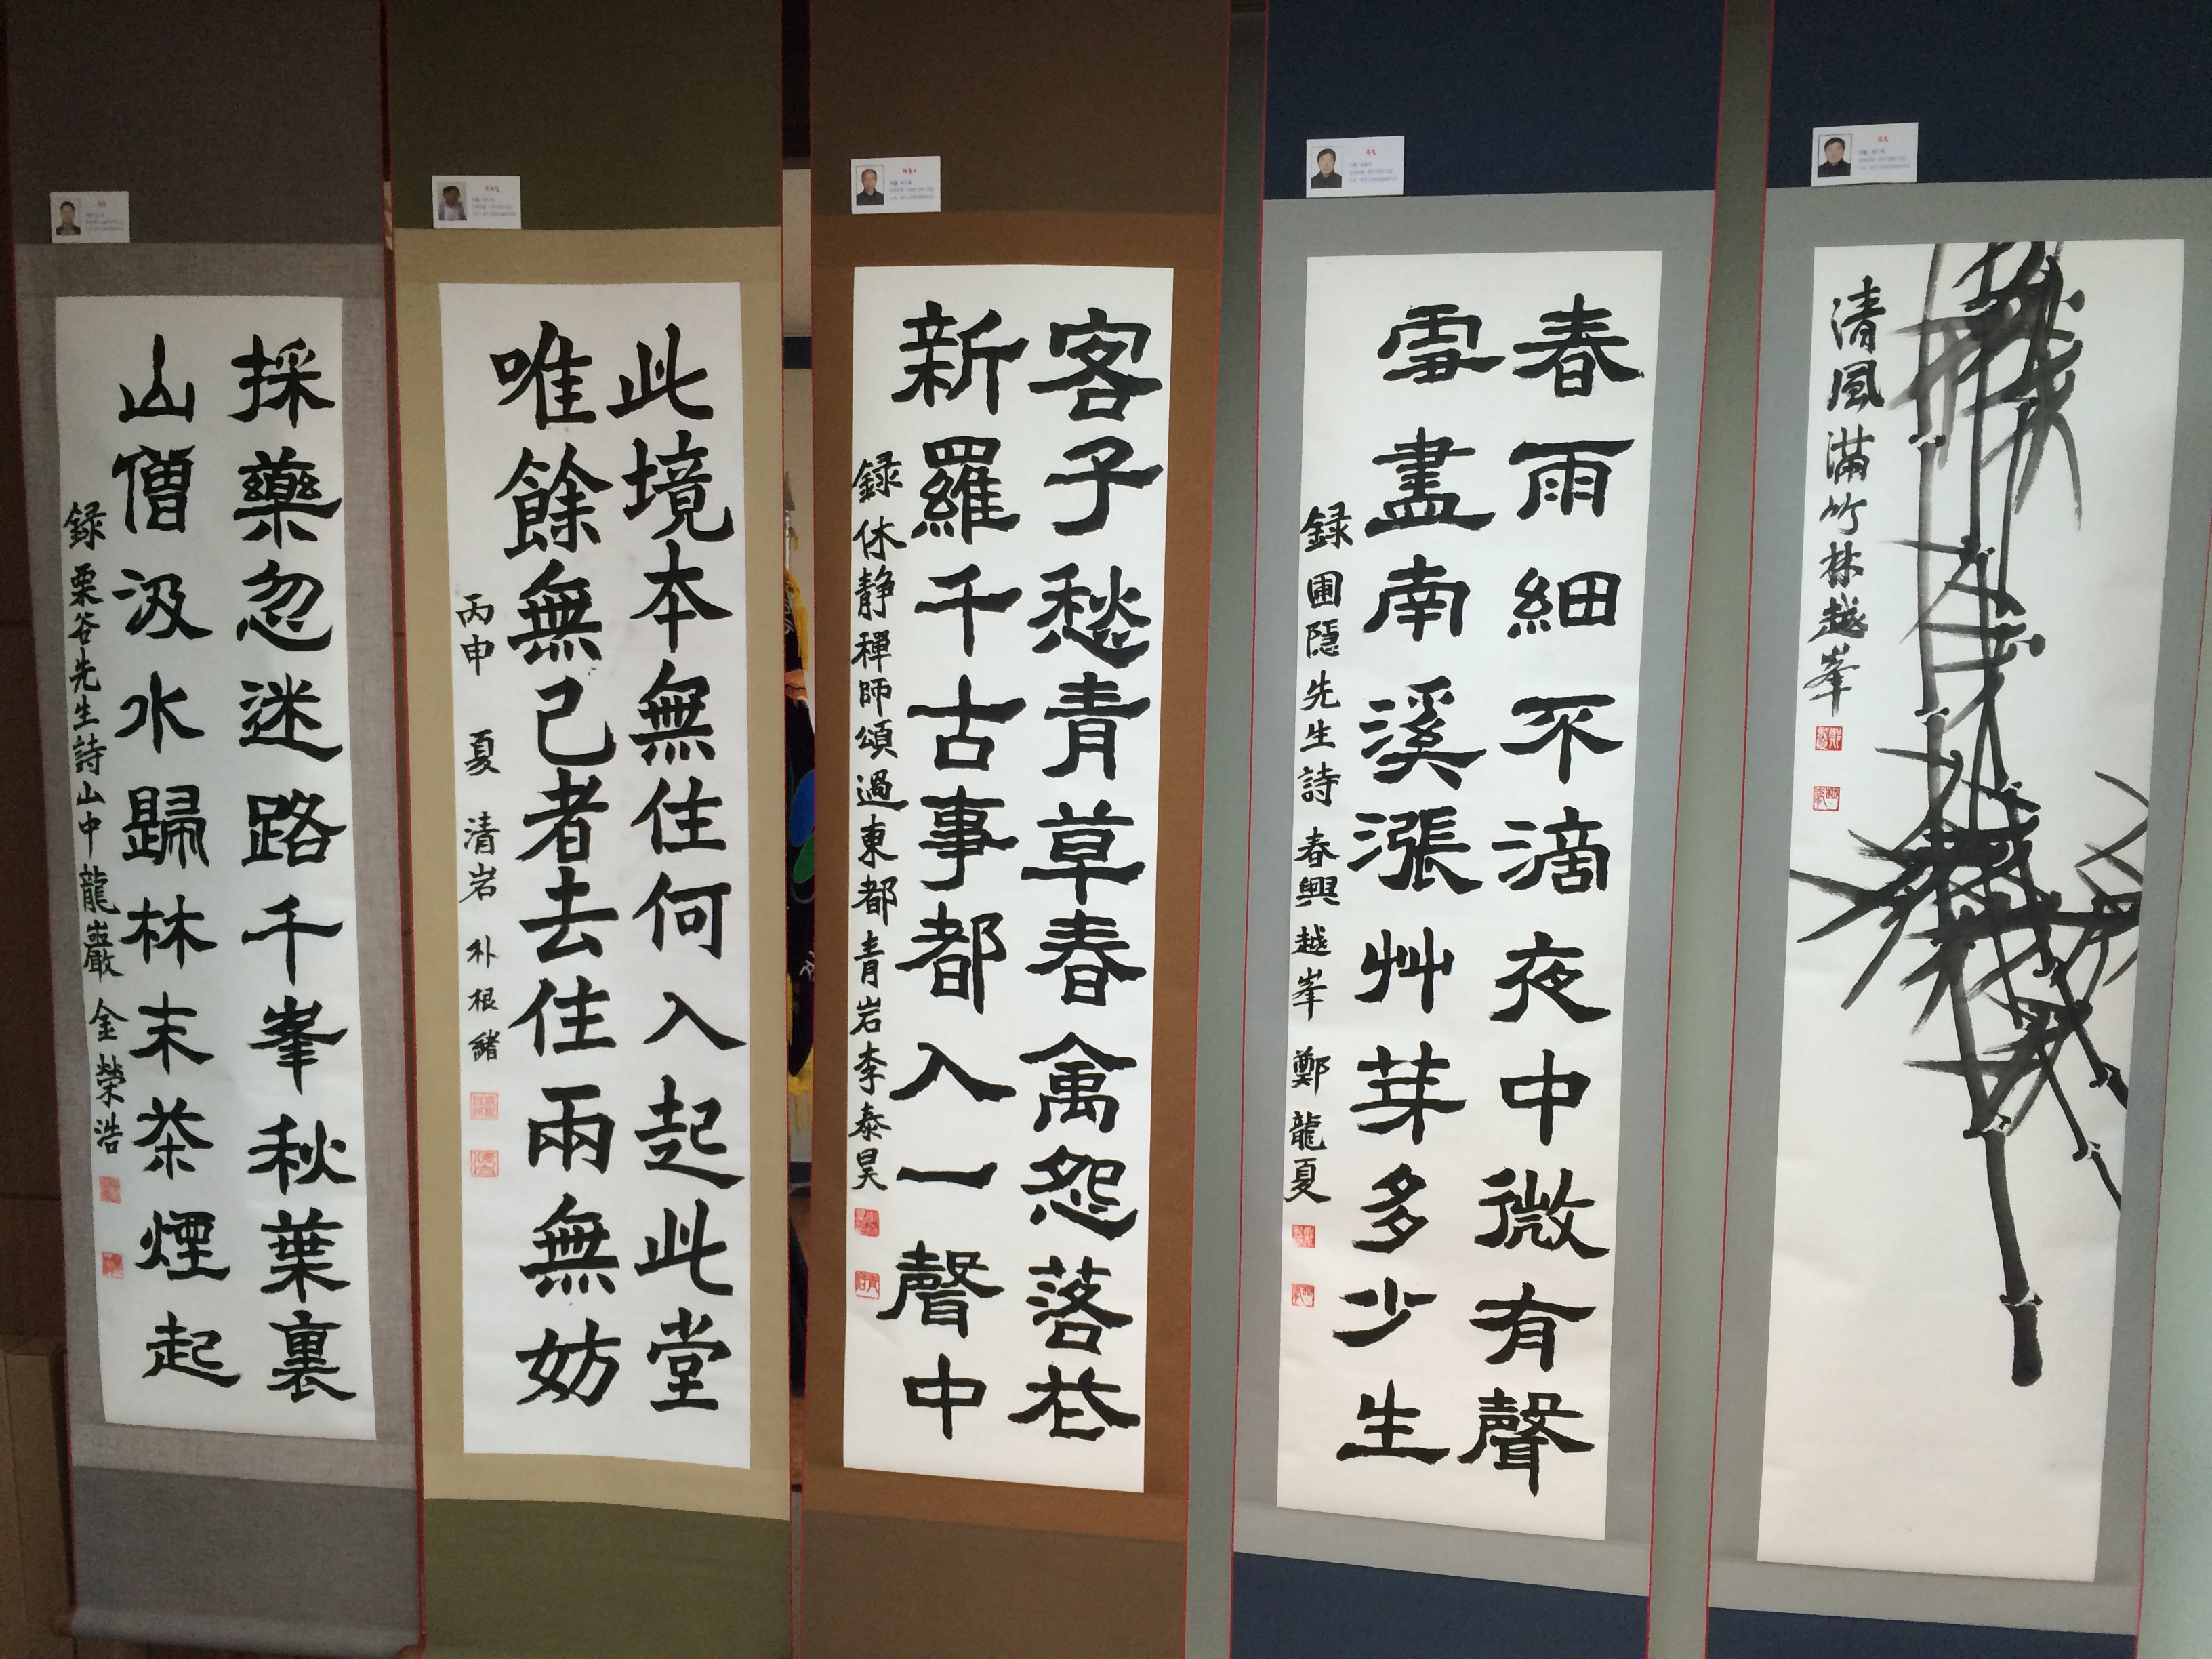 採藥忽迷路千峯秋葉裏
山僧汲水歸林末茶煙起
録栗谷先生詩山中龍巖金榮浩
此境本無住何人起此堂
唯餘無己者去住兩無妨
丙申夏清岩朴根緒
客子愁青草春禽怨落花
新羅千古事都入一聲中
録休静禪師頌過東都青岩李泰昊
春雨細不滴夜中微有聲
雪盡南溪漲艸芽多少生
録圃隱先生詩春興越峯鄭龍夏
清風滿竹林越峯